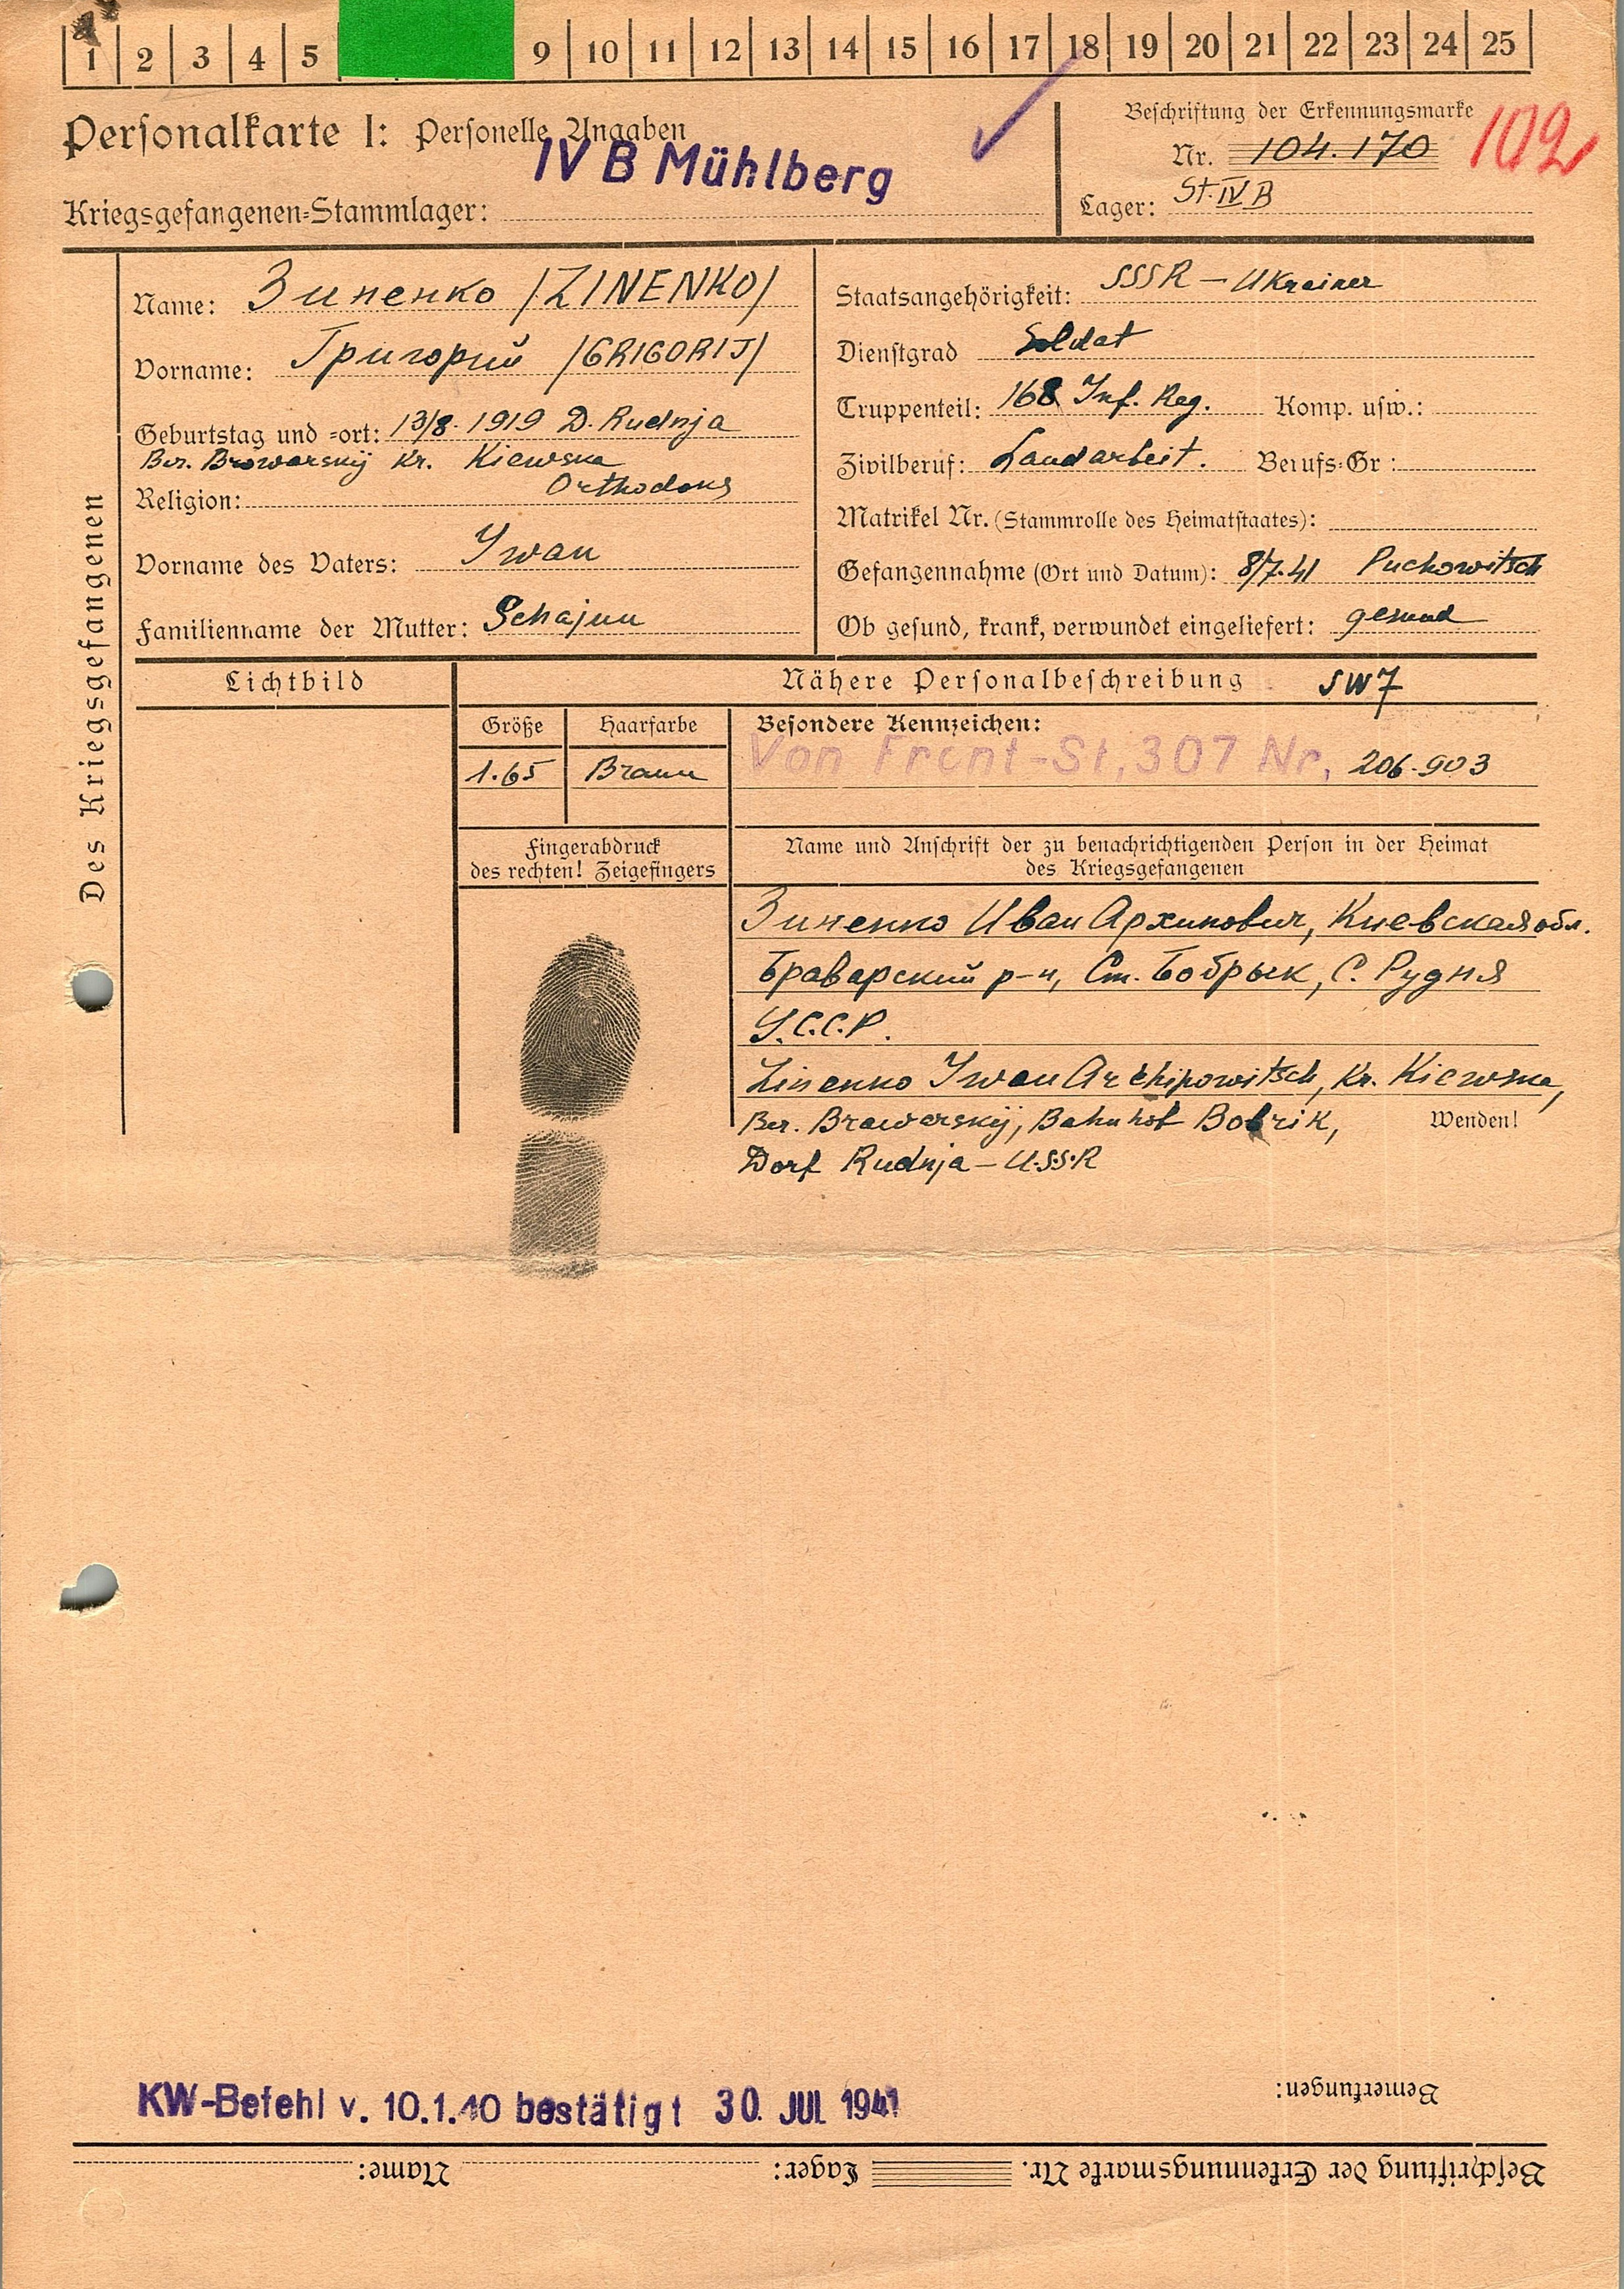 1 2 3 4 5 9 10 11 12 13 14 15 16 17 18 19 20 21 22 23 24 25
Personalkarte I: Personelle Angaben
IV B Mühlberg
Kriegsgefangenen-Stammlager:
Beschriftung der Erkennungsmarke
Nr. 104.170
102
Lager: St. IV B
Des Kriegsgefangenen
Name: Зиненко /ZINENKO/
Vorname: Григорий /GRIGORIJ/
Geburtstag und -ort: 13/8. 1919 D. Rudnja
Ber. Browarskij Kr. Kiewska
Religion: Orthodox
Vorname des Vaters: Iwan
Familienname der Mutter: Schajun
Staatsangehörigkeit: SSSR – Ukrainer
Dienstgrad Soldat
Truppenteil: 168 Inf. Reg. Komp. usw.:
Zivilberuf: Landarbeit. Berufs-Gr:
Matrikel Nr. (Stammrolle des Heimatstaates):
Gefangennahme (Ort und Datum): 8/7.41 Puchowitsch
Ob gesund, krank, verwundet eingeliefert: gesund
Lichtbild
Nähere Personalbeschreibung SW7
Größe Haarfarbe
1.65 Braun
Besondere Kennzeichen:
Von Front-St. 307 Nr. 206-903
Fingerabdruck
des rechten! Zeigefingers
Name und Anschrift der zu benachrichtigenden Person in der Heimat
des Kriegsgefangenen
Зиненко Иван Архипович, Киевская обл.
Браварский р-н, Ст. Бобрык, С. Рудня
У.С.С.Р.
Zinenko Iwan Archipowitsch, Kr. Kiewska,
Ber. Brawarskij, Bahnhof Bobrik,
Wenden!
Dorf Rudnja – U.S.S.R
KW-Befehl v. 10.1.40 bestätigt 30. JUL 1941
Bemerkungen:
Beschriftung der Erkennungsmarke Nr. Lager: Name: